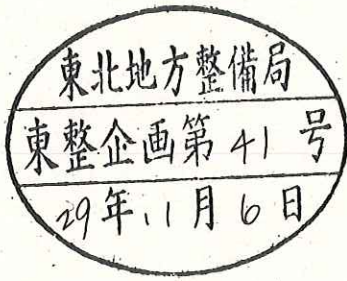 東北地方整備局
東整企画第41号
29年11月6日